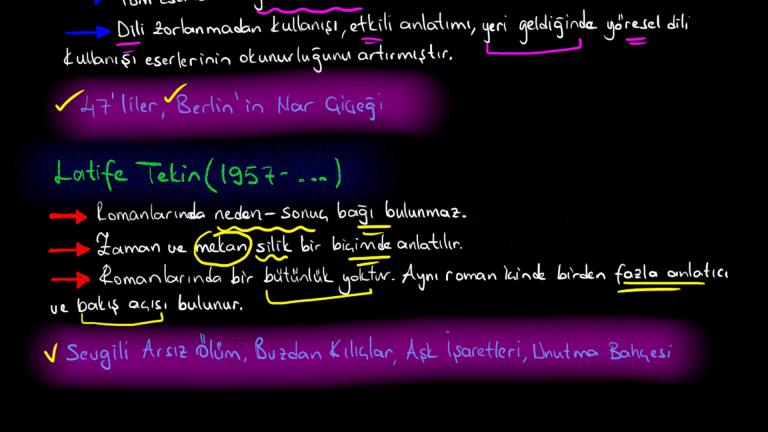 Dili zorlanmadan kullanışı, etkili anlatımı, yeri geldiğinde yöresel dili
kullanışı eserlerinin okunurluğunu artırmıştır.
47'liler, Berlin'in Nar Çiçeği
Latife Tekin (1957- ...)
Romanlarında neden-sonuç bağı bulunmaz.
Zaman ve mekan silik bir biçimde anlatılır.
Romanlarında bir bütünlük yoktur. Aynı roman içinde birden fazla anlatıcı
ve bakış açısı bulunur.
Sevgili Arsız Ölüm, Buzdan Kılıçlar, Aşk İşaretleri, Unutma Bahçesi